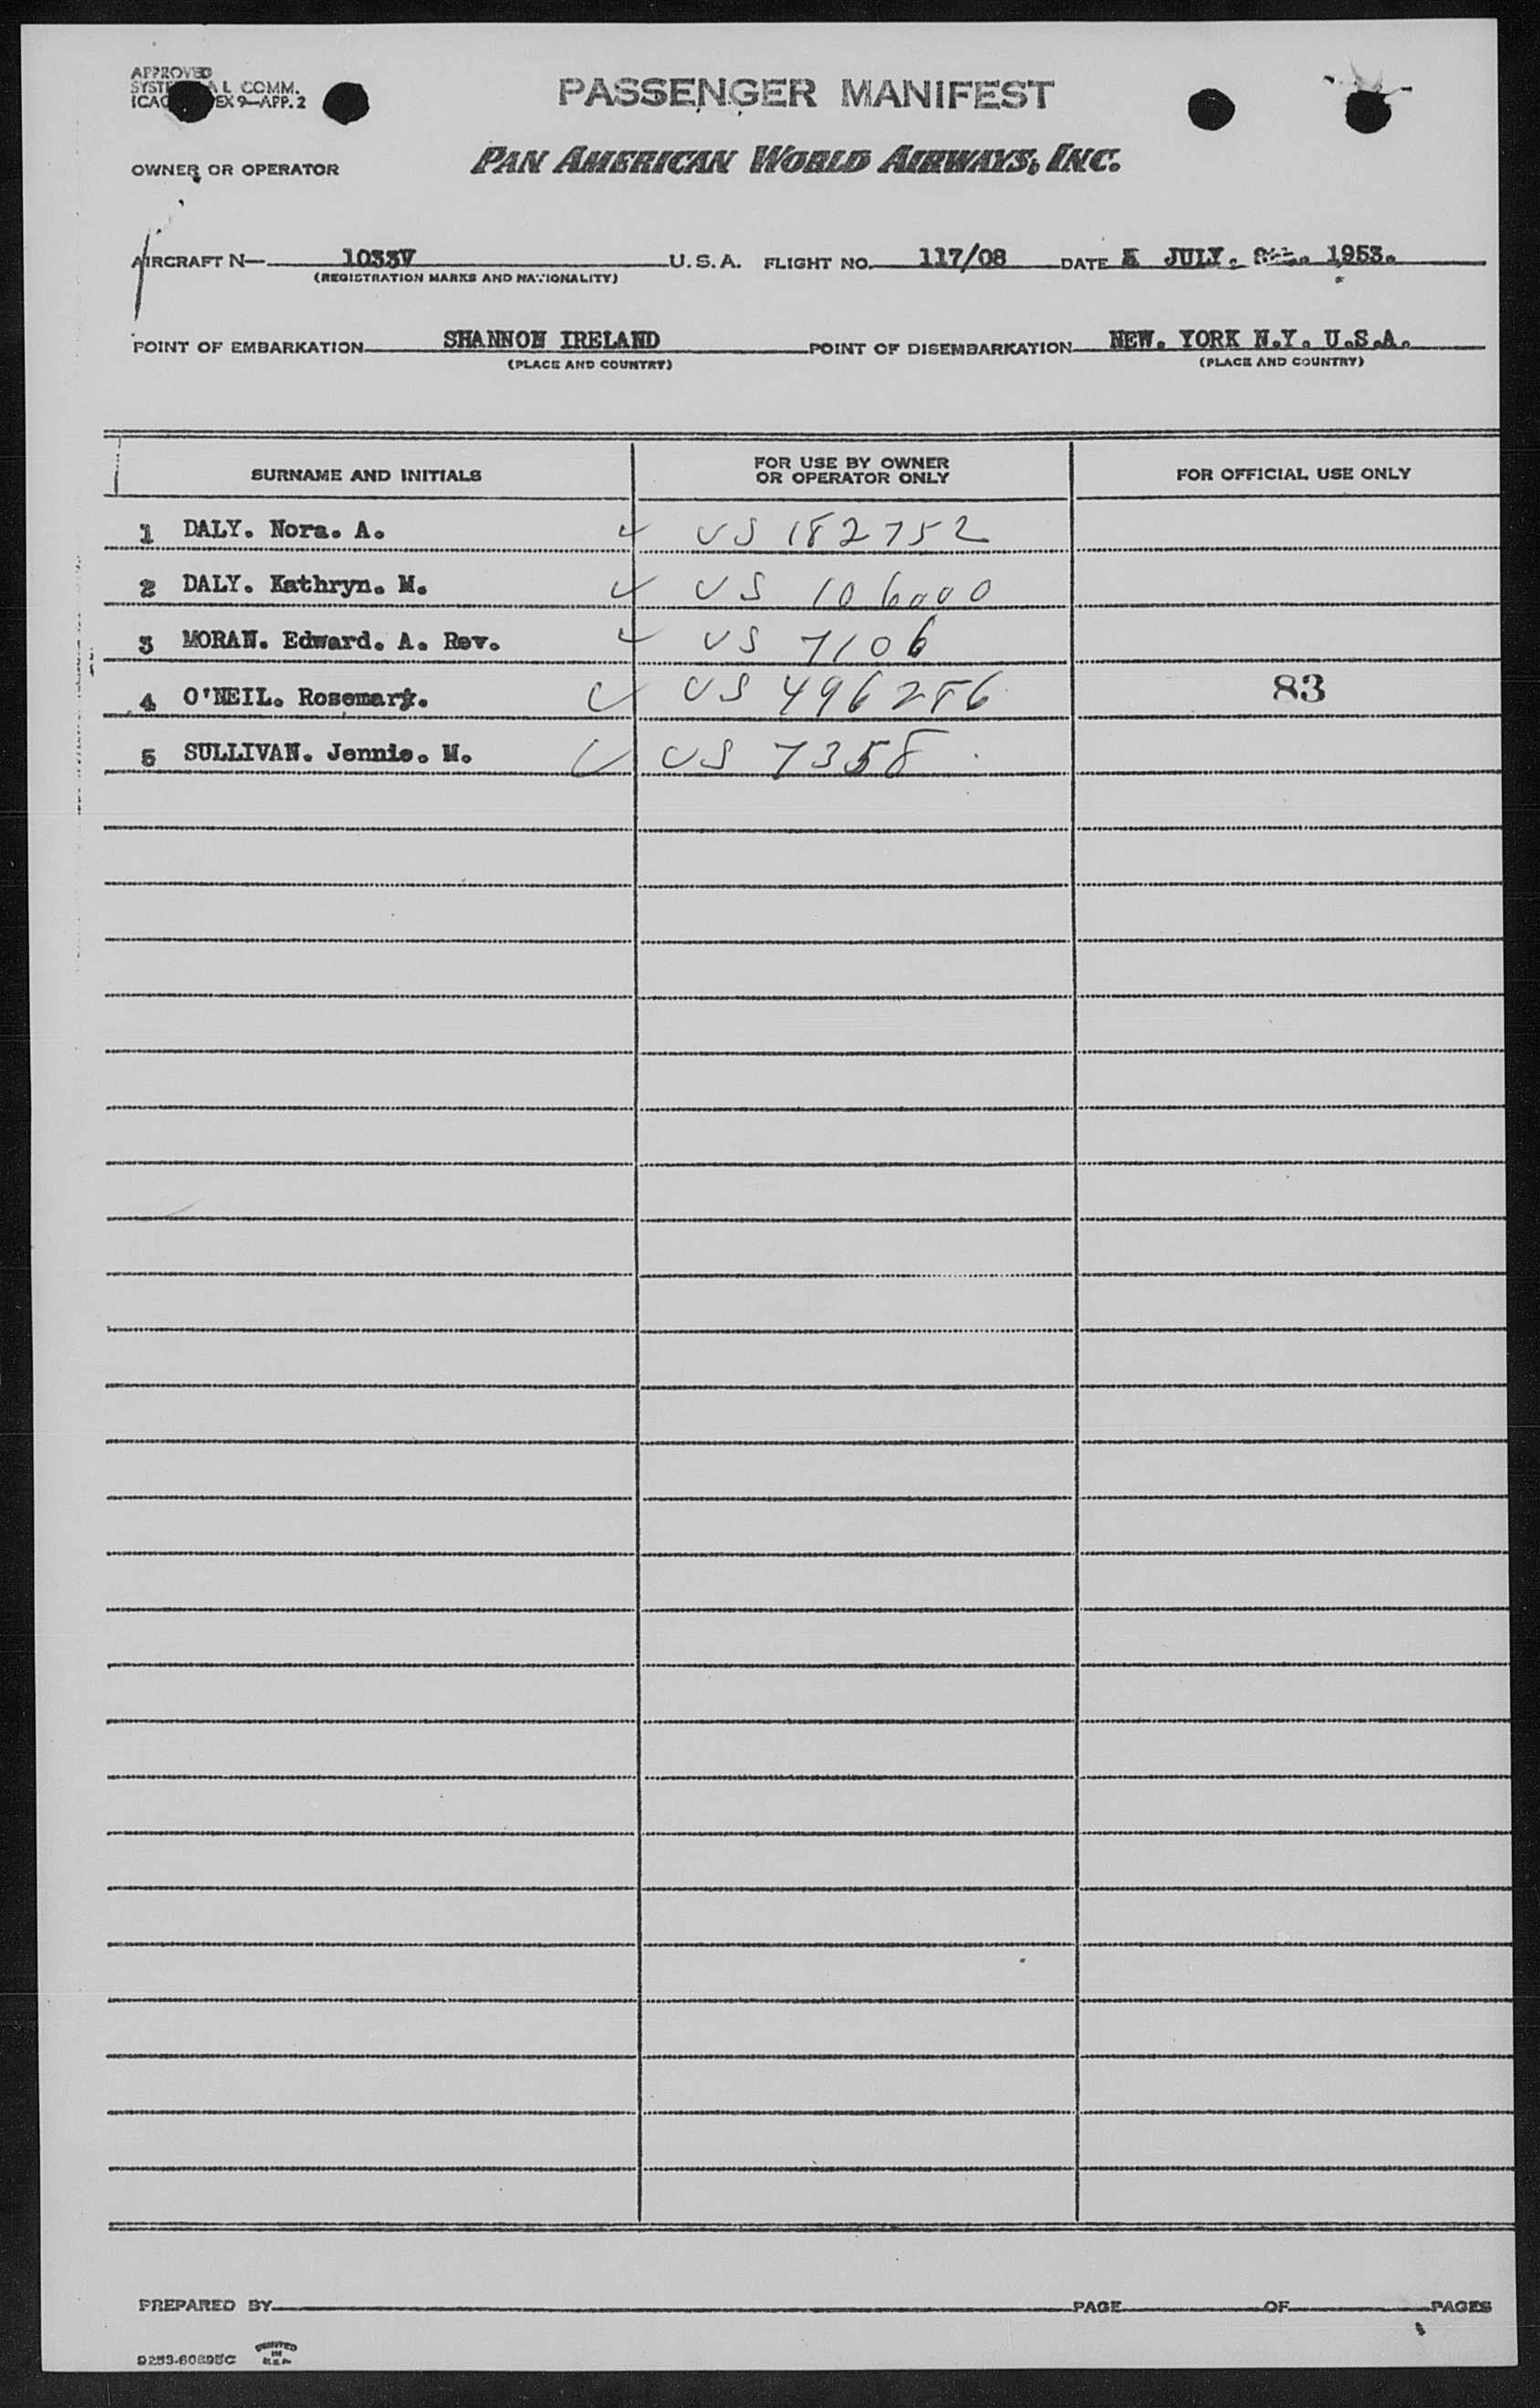 APPROVED
COMM.
EX 9—APP. 2
PASSENGER MANIFEST
OWNER OR OPERATOR
PAN AMERICAN WORLD AIRWAYS, INC.
AIRCRAFT N— 1033V U. S. A. FLIGHT NO. 117/08 DATE JULY. 1953.
(REGISTRATION MARKS AND NATIONALITY)
POINT OF EMBARKATION SHANNON IRELAND POINT OF DISEMBARKATION NEW. YORK N.Y. U.S.A.
(PLACE AND COUNTRY) (PLACE AND COUNTRY)
SURNAME AND INITIALS FOR USE BY OWNER OR OPERATOR ONLY FOR OFFICIAL USE ONLY
1 DALY. Nora. A. ✓ US 182752
2 DALY. Kathryn. M. ✓ US 106000
3 MORAN. Edward. A. Rev. ✓ US 7106
4 O'NEIL. Rosemary. ✓ US 496286 83
5 SULLIVAN. Jennie. M. ✓ US 7358
PREPARED BY PAGE OF PAGES
PRINTED
IN
U.S.A.